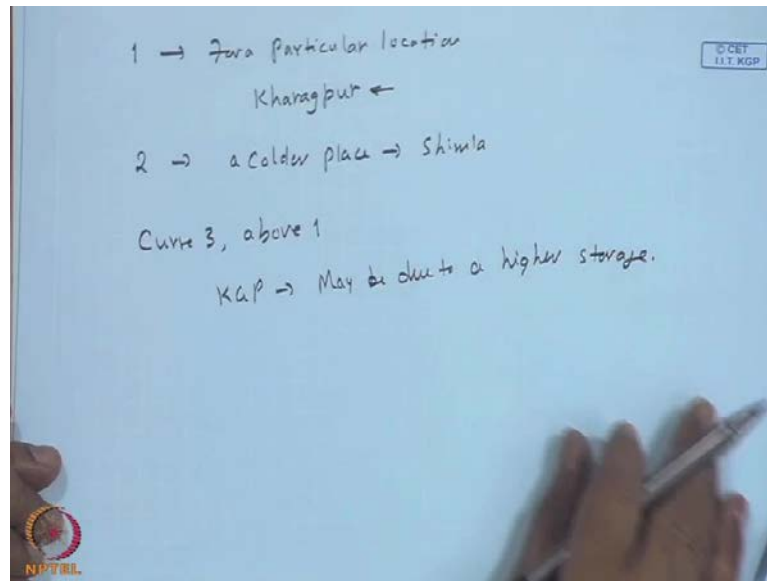 1 → For a Particular location
Kharagpur ←
2 → a Colder place → Shimla
Curve 3, above 1
KGP → May be due to a higher storage.
© CET
I.I.T. KGP
NPTEL